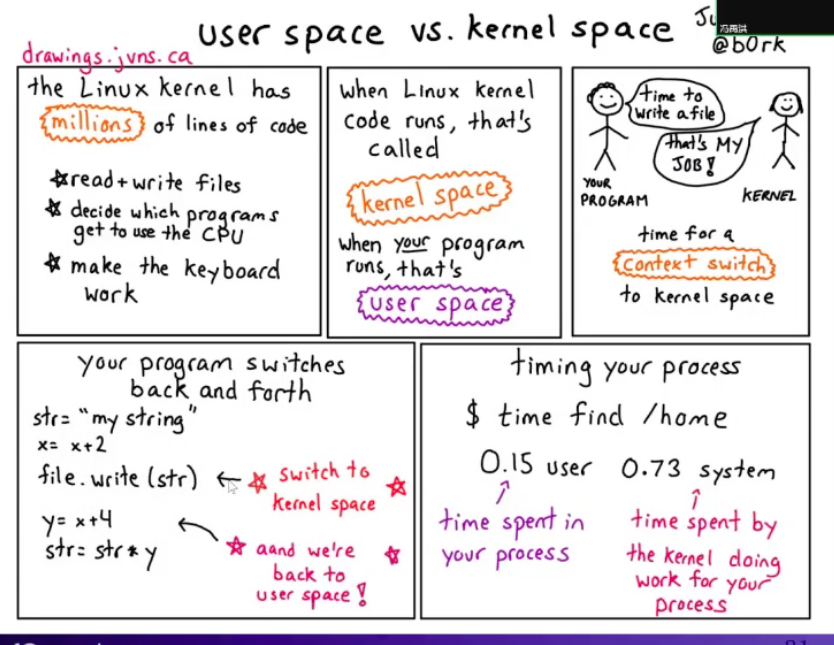 user space vs. kernel space
drawings.jvns.ca
@b0rk
the Linux kernel has
millions of lines of code
☆read+write files
☆ decide which programs
get to use the CPU
☆ make the keyboard
work
when Linux kernel
code runs, that's
called
kernel space
when your program
runs, that's
user space
time to
write a file
that's MY
JOB!
YOUR
PROGRAM
KERNEL
time for a
context switch
to kernel space
your program switches
back and forth
str= "my string"
x= x+2
file.write(str) ← ☆ switch to ☆
kernel space
y= x+4
str= str*y
☆ aand we're ☆
back to
user space!
timing your process
$ time find /home
0.15 user 0.73 system
time spent in
your process
time spent by
the kernel doing
work for your
process